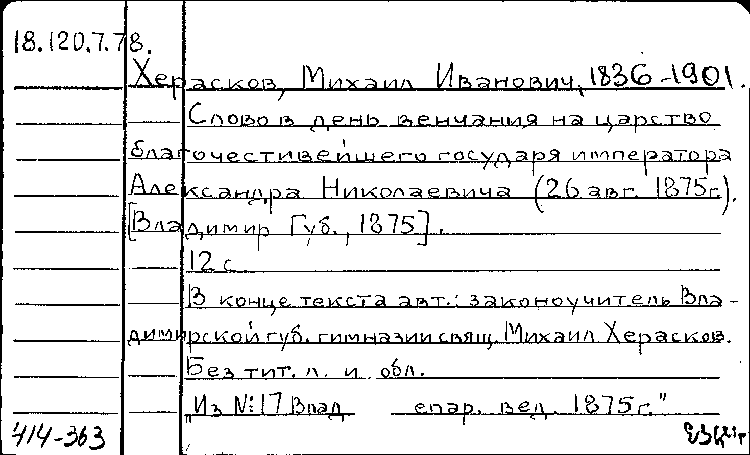 18.120.7.78.
Херасков, Михаил Иванович, 1836-1901.
Слово в день венчания на царство
благочестивейшего государя императора
Александра Николаевича (26 авг. 1875г.).
[Владимир Губ., 1875].
12 с
В конце текста авт.: законоучитель Вла-
димирской губ. гимназии свящ. Михаил Херасков.
Без тит. л. и обл.
"Из №17 Влад епар. вед. 1875г."
414-363